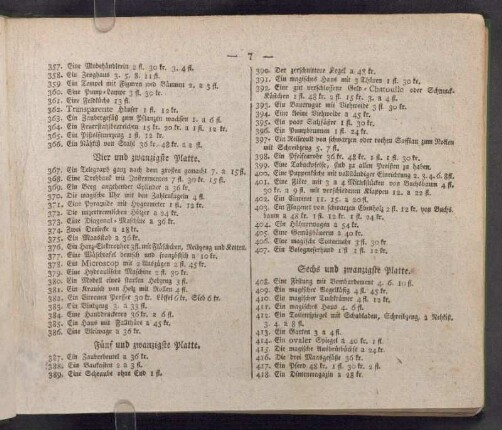 — 7 —
357. Eine Modehändlerin 2 fl. 30 kr. 3. 4 fl.
358. Ein Zeughaus 3. 5. 8. 11 fl.
359. Ein Tempel mit Figuren und Bäumen 2. a 3 fl.
360. Eine Pump-Lampe 3 fl. 30 kr.
361. Eine Feldküche 13 fl.
362. Transparente Häuser 1 fl. 12 kr.
363. Ein Zaubergefäß zum Pflanzen wachsen 1. a 6 fl.
364. Ein Feuerthätzereichen 15 kr. 30 kr. a 1 fl. 12 kr.
365. Ein Pistolensprung 1 fl. 12 kr.
366. Ein Nähtisch von Stahl 36 kr. 48 kr. a 2 fl.
Vier und zwanzigste Platte.
367. Ein Telegraph ganz nach dem großen gemacht 7. a 15 fl.
368. Eine Drehbank mit Instrumenten 7 fl. 30 kr. 15 fl.
369. Ein Berg angehender Cylinder a 36 kr.
370. Die magische Uhr mit den Zahlentafeln 4 fl.
371. Eine Pyramide mit Hygrometer 1 fl. 12 kr.
372. Die unzertrennlichen Hölzer a 24 kr.
373. Eine Diagonal-Maschine a 36 kr.
374. Zwei Dreiecke a 18 kr.
375. Ein Maasstab a 36 kr.
376. Ein Harz-Electrophor 3 fl. mit Fläschchen, Reibzeug und Ketten.
377. Eine Waschtafel deutsch und französisch a 10 kr.
378. Ein Microscop mit 2 Auszügen 2 fl. 45 kr.
379. Eine Hydraulische Maschine 2 fl. 30 kr.
380. Ein Modell eines starken Hebzeug 3 fl.
381. Ein Krannich von Holz mit Rollen 4 fl.
382. Ein Citronen Presser 30 kr. Löffel 6 kr. Sieb 6 kr.
383. Ein Windzeug 3. a 33 fl.
384. Eine Handdruckerei 36 kr. a 6 fl.
385. Ein Haus mit Fallthüre a 45 kr.
386. Eine Bleiwaage a 36 kr.
Fünf und zwanzigste Platte.
387. Ein Zauberbeutel a 36 kr.
388. Ein Baukasten 2 a 3 fl.
389. Eine Schraube ohne End 1 fl.
390. Der zerschnittene Kegel a 48 kr.
391. Ein magisches Haus mit 3 Thüren 1 fl. 30 kr.
392. Eine gut verschlossene Geld-Chattoulle oder Schmuck-
Kästchen 1 fl. 48 kr. a 3 fl. 45 kr.
393. Ein Bauerngut mit Viehweide 3 fl. 30 kr.
394. Eine kleine Viehweide a 45 kr.
395. Ein paar Salzfässer 1 fl. 30 kr.
396. Ein Pumpbrunnen 1 fl. 24 kr.
397. Ein Rollwagen von schwarzen oder rothen Saffian zum Rollen
mit Schreibzeug 5. 7 fl.
398. Eine Pfeifenrohr 36 kr. 48 kr. 1 fl. 1 fl. 30 kr.
399. Eine Tabackspfeife, sind zu allen Preisen zu haben.
400. Ein Puppenküche mit vollständiger Einrichtung 2. 3. 4. 6 fl.
401. Eine Flöte mit 3 a 4 Mittelstücken von Buchsbaum 4 fl.
30 kr. a 9 fl. mit verschiedenen Klappen 12. a 22 fl.
402. Ein Clarinet 11. 15. a 20 fl.
403. Ein Flagenet von schwarzen Ebenholz 2 fl. 12 kr. von Buchs-
baum a 48 kr. 1 fl. 12 kr. 1 fl. 24 kr.
404. Ein Hühnerwagen a 54 kr.
405. Eine Gemüshändlerin a 40 kr.
406. Eine magische Cartouche 3 fl. 30 kr.
407. Ein Belogneserhund 1 fl. 1 fl. 30 kr.
Sechs und zwanzigste Platte.
408. Eine Festung mit Bombardement 4. 6. 10 fl.
409. Ein magischer Vogelkäfig 4 fl. 45 kr.
410. Ein magischer Tuchkrämer 4 fl. 12 kr.
411. Ein magisches Haus a 4 fl.
412. Ein Damenspiegel mit Schubladen, Schreibzeug, 2 Nehkiß,
3. 4. a 8 fl.
413. Ein Garten 3 a 4 fl.
414. Ein ovaler Spiegel a 40 kr. 1 fl.
415. Die magische Ausdrehbüchse a 24 kr.
416. Die drei Maasgefäße 36 kr.
417. Ein Pferd 48 kr. 1 fl. 30 kr. 2 fl.
418. Ein Düttenmagazin a 28 kr.